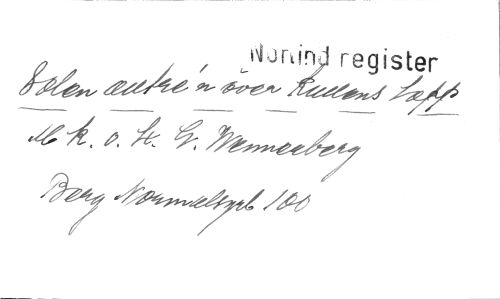 Norlind register
Solen aukté'n över kullens topp
M k. o. t. G. Wennerberg
Berg Normaltyrb 100